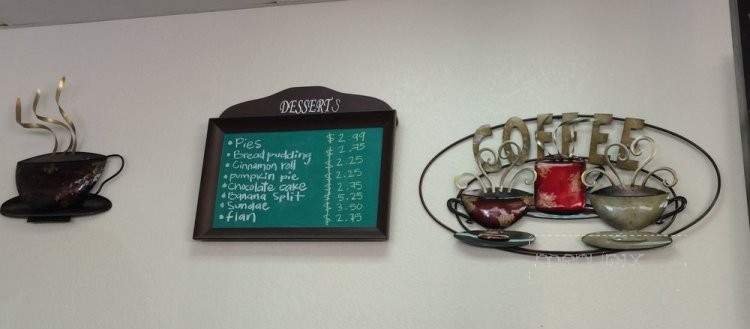 DESSERTS
• Pies $ 2.99
• Bread pudding $ 2.75
• Cinnamon roll $ 2.25
• pumpkin pie $ 2.25
• chocolate cake $ 2.75
• Banana Split $ 5.25
• Sundae $ 3.50
• flan $ 2.75
COFFEE